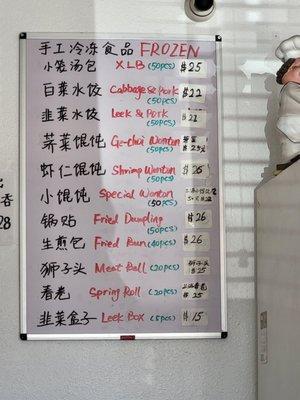 手工冷冻食品 FROZEN
小笼汤包 XLB (50pcs) $25
白菜水饺 Cabbage & Pork $22
(50pcs)
韭菜水饺 Leek & Pork $22
(50pcs)
荠菜馄饨 Ge-chui Wonton
(50pcs)
虾仁馄饨 Shrimp Wonton $26
(50pcs)
小馄饨 Special Wonton
(50pcs)
锅贴 Fried Dumpling $26
(50pcs)
生煎包 Fried Bun (40pcs) $26
狮子头 Meat Ball (20pcs) 狮子头 $25
春卷 Spring Roll (20pcs) $25
韭菜盒子 Leek Box (5pcs) $15
28